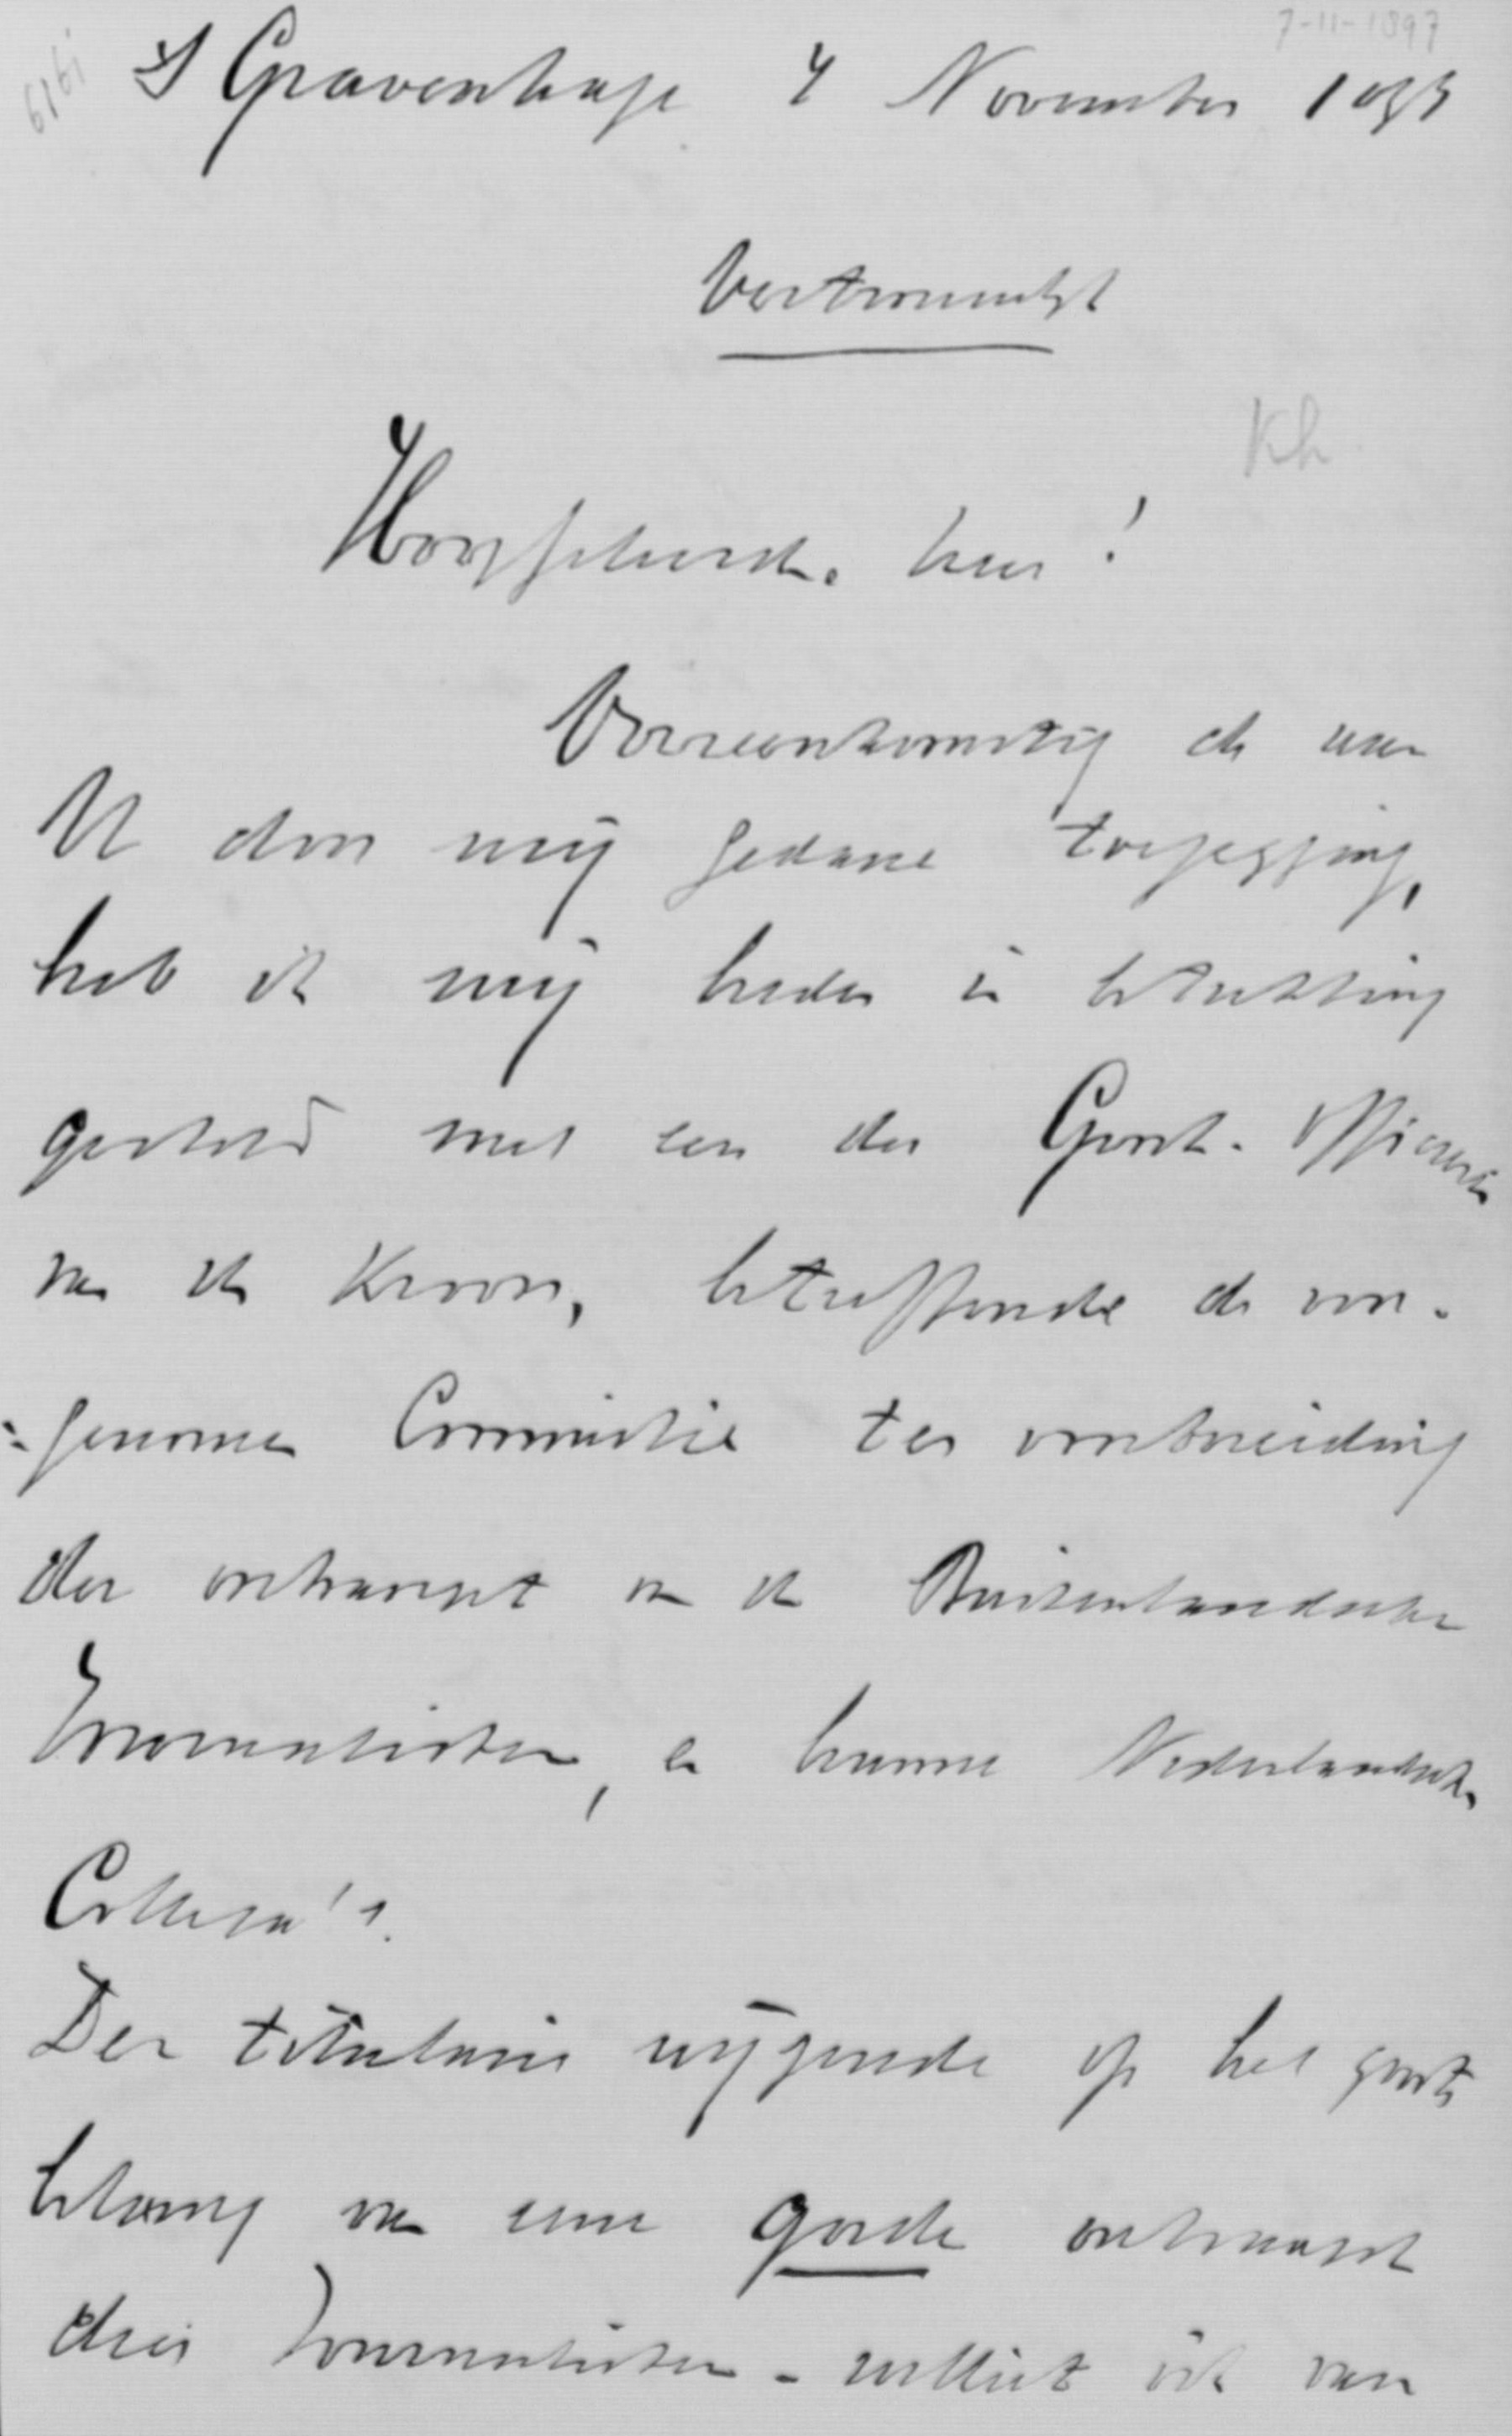 7-11-1897
S Gravenhage 7 November 1897
Vertrouwelijk
Kh
Hooggeleerde heer!
Overeenkomstig de aan
U door mij gedane toezegging,
heb ik mij heden in betrekking
gesteld met een der Groot- Officieren
van de Kroon, betreffende de voor-
=genomen Commissie ter voorbereiding
der ontvangst van de Buitenlandsche
Journalisten, en hunne Nederlandsche
Collega's.
Den titularis wijzende op het groote
belang van eene goede ontvangst
dier Journalisten - wellicht ook van